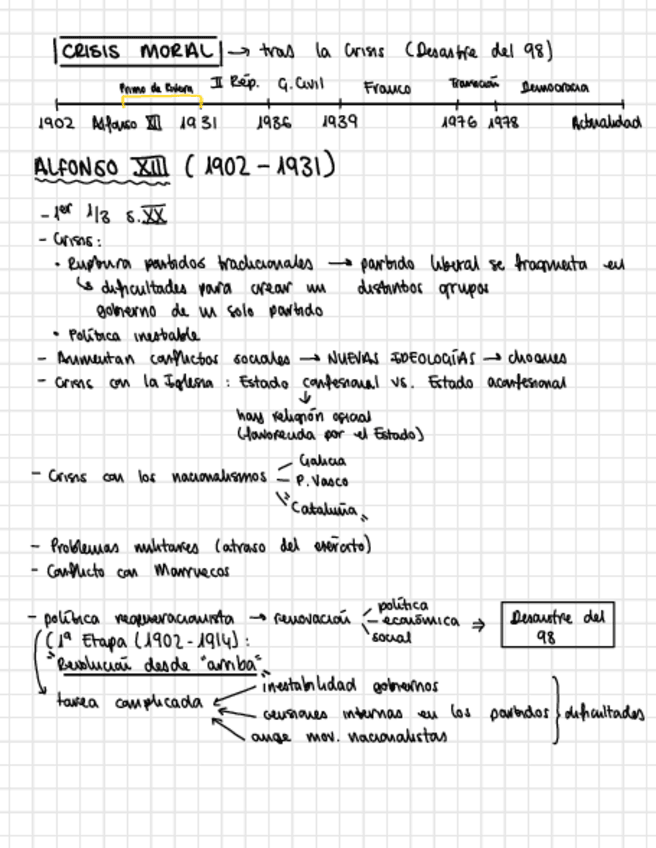 CRISIS MORAL → tras la Crisis (Desastre del 98)
Primo de Rivera II Rép. G. Civil Franco Transición Democracia
1902 Alfonso XIII 1931 1936 1939 1976 1978 Actualidad
ALFONSO XIII (1902-1931)
- 1er 1/3 s.XX
- Crisis:
· Ruptura partidos tradicionales → partido liberal se fragmenta en
↳ dificultades para crear un distintos grupos
gobierno de un solo partido
· Política inestable
- Aumentan conflictos sociales → NUEVAS IDEOLOGÍAS → choques
- Crisis con la Iglesia : Estado confesional vs. Estado aconfesional
↓
hay religión oficial
(favorecida por el Estado)
- Crisis con los nacionalismos
Galicia
P. Vasco
"Cataluña"
- Problemas militares (atraso del ejército)
- Conflicto con Marruecos
- política regeneracionista → renovación política económica social ⇒ Desastre del 98
(1ª Etapa (1902-1914) :
"Revolución desde "arriba"
tarea complicada
inestabilidad gobiernos
tensiones internas en los partidos } dificultades
auge mov. nacionalistas